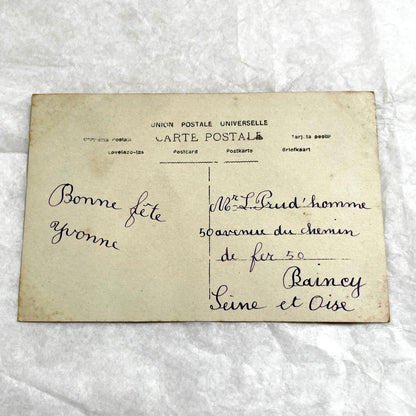 UNION POSTALE UNIVERSELLE
CARTE POSTALE
Tarjeta postal
Levelezo-Lap Postcard Postkarte Briefkaart
Bonne fête
Yvonne
Mr L. Prud'homme
50 avenue du chemin
de fer 50
Raincy
Seine et Oise